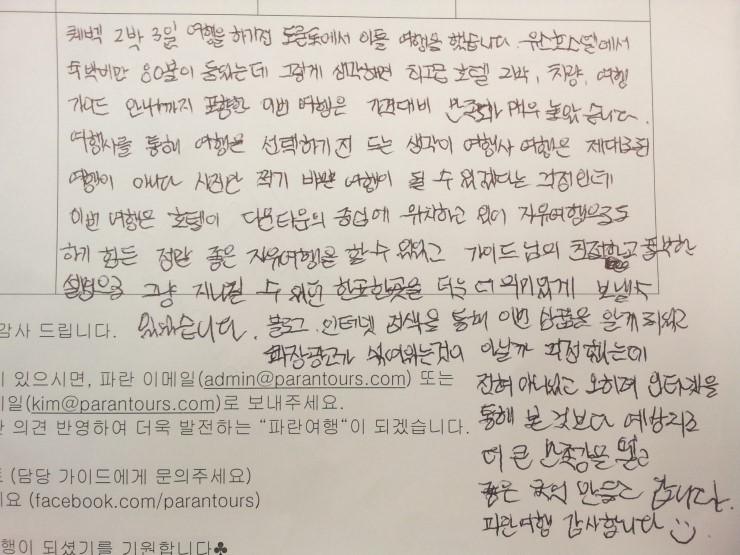 퀘벡 2박 3일 여행을 하기전 토론토에서 이틀 여행을 했습니다. 유스호스텔에서
숙박비만 80불이 들었는데 그렇게 생각하면 최고급 호텔 2박, 차량, 여행
가이드 안내까지 포함한 이번 여행은 가격대비 만족도가 매우 높았습니다.
여행사를 통해 여행을 선택하기 전 드는 생각이 여행사 여행은 제대로된
여행이 아니라 사진만 찍기 바쁜 여행이 될 수 있겠다는 걱정인데
이번 여행은 호텔이 다운타운의 중심에 위치하고 있어 자유여행으로도
하기 힘든 정말 좋은 자유여행을 할 수 있었고 가이드님의 친절하고 풍부한
설명으로 그냥 지나칠 수 있던 한곳한곳을 더욱 더 의미있게 보낼 수
감사 드립니다. 있었습니다. 블로그, 인터넷 검색을 통해 이번 상품을 알게 되었고
과장광고가 섞여있는것이 아닐까 걱정했는데
이 있으시면, 파란 이메일(admin@parantours.com) 또는
전혀 아니었고 오히려 인터넷을
일(kim@parantours.com)로 보내주세요.
통해 본 것보다 예상외로
의견 반영하여 더욱 발전하는 “파란여행“이 되겠습니다.
더 큰 만족감을 얻고
트 (담당 가이드에게 문의주세요)
좋은 추억 만들고 갑니다.
요 (facebook.com/parantours)
파란여행 감사합니다
행이 되셨기를 기원합니다♣